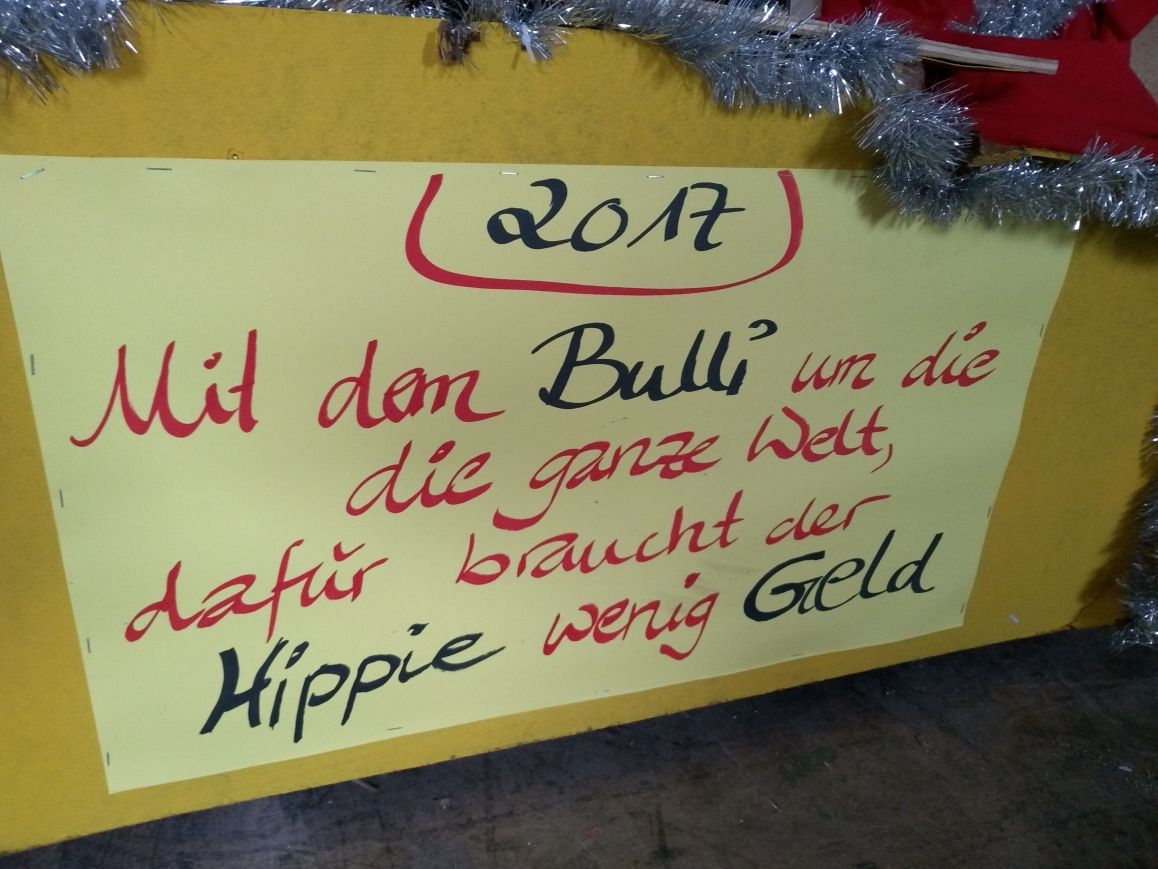 2017
Mit dem Bulli um die
die ganze Welt,
dafür braucht der
Hippie wenig Geld